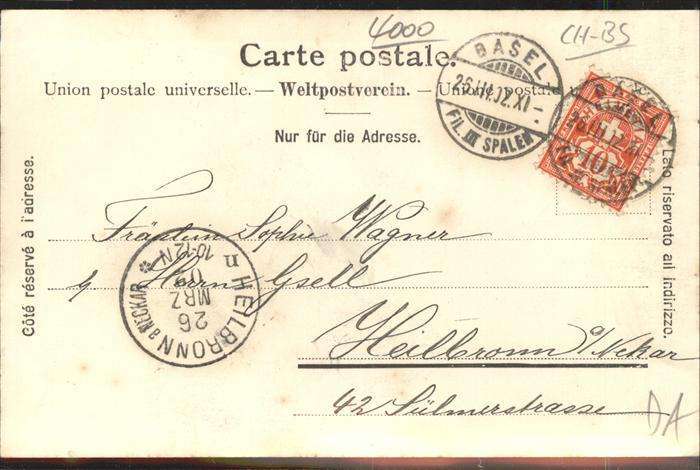 4000
CH-BS
Carte postale.
Union postale universelle. — Weltpostverein. — Unione postale
Nur für die Adresse.
Côté réservé à l'adresse.
Lato riservato all indirizzo.
BASEL
26.III.02.XI-
FIL. III SPALEN
Fräulein Sophie Wagner
Herrn Gsell
Heilbronn a/Nekar
42 Sülmerstrasse
HEILBRONN a NECKAR
26
MRZ
02
10-12N
II
DA